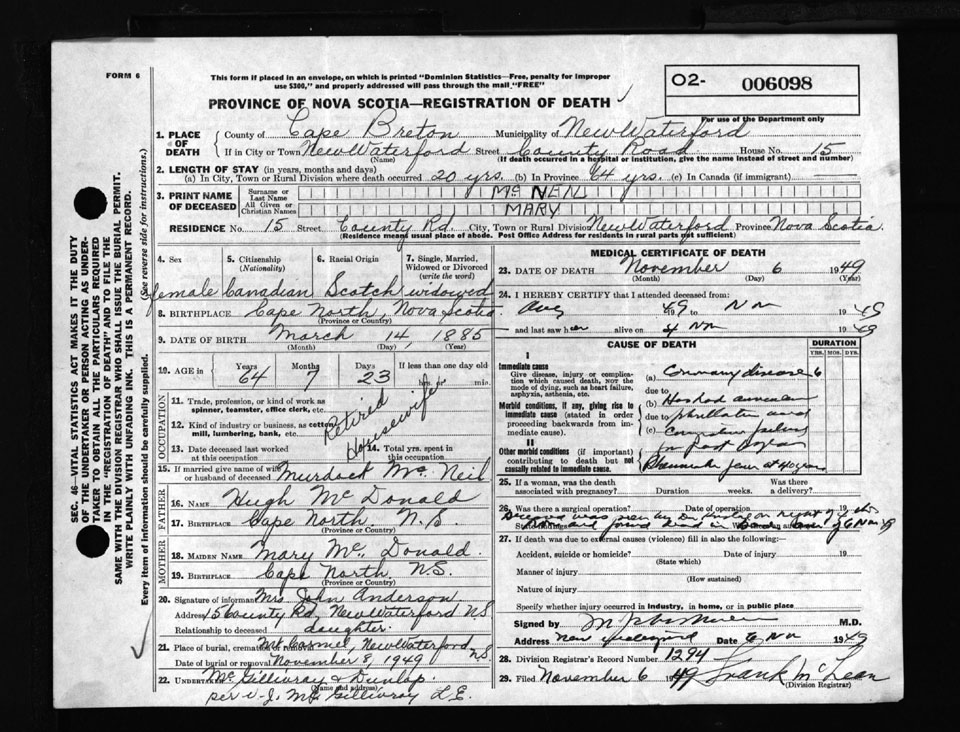 FORM 6
This form if placed in an envelope, on which is printed "Dominion Statistics—Free, penalty for improper
use $300," and properly addressed will pass through the mail "FREE"
PROVINCE OF NOVA SCOTIA—REGISTRATION OF DEATH
O2- 006098
For use of the Department only
1. PLACE OF DEATH
County of Cape Breton Municipality of New Waterford
If in City or Town New Waterford Street County Road House No. 15
(Name) (If death occurred in a hospital or institution, give the name instead of street and number)
2. LENGTH OF STAY (in years, months and days)
(a) In City, Town or Rural Division where death occurred 20 yrs. (b) In Province 64 yrs. (c) In Canada (if immigrant)
3. PRINT NAME OF DECEASED
Surname or Last Name McNEIL
All Given or Christian Names MARY
RESIDENCE No. 15 Street County Rd. City, Town or Rural Division New Waterford Province Nova Scotia
(Residence means usual place of abode. Post Office Address for residents in rural parts not sufficient)
4. Sex
5. Citizenship (Nationality)
6. Racial Origin
7. Single, Married, Widowed or Divorced (write the word)
female Canadian Scotch widowed
8. BIRTHPLACE Cape North, Nova Scotia
(Province or Country)
9. DATE OF BIRTH March 14, 1885
(Month) (Day) (Year)
10. AGE in
Years Months Days If less than one day old
64 7 23 hrs. or min.
OCCUPATION
11. Trade, profession, or kind of work as
spinner, teamster, office clerk, etc.
12. Kind of industry or business, as cotton
mill, lumbering, bank, etc.
Retired Housewife
13. Date deceased last worked at this occupation
14. Total yrs. spent in this occupation
15. If married give name of wife or husband of deceased Murdock McNeil
FATHER
16. NAME Hugh McDonald
17. BIRTHPLACE Cape North N.S.
(Province or Country)
MOTHER
18. MAIDEN NAME Mary McDonald
19. BIRTHPLACE Cape North N.S.
(Province or Country)
20. Signature of informant Mrs John Anderson
Address 15 County Rd, New Waterford N.S.
Relationship to deceased daughter
21. Place of burial, cremation or removal Mt Carmel, New Waterford N.S.
Date of burial or removal November 8, 1949
22. UNDERTAKER McGillivray & Dunlap
(Name and address)
MEDICAL CERTIFICATE OF DEATH
23. DATE OF DEATH November 6 1949
(Month) (Day) (Year)
24. I HEREBY CERTIFY that I attended deceased from:
Aug 1949 to Nov 1949
and last saw her alive on 4 Nov 1949
CAUSE OF DEATH
DURATION
YRS. MOS. DYS.
I
Immediate cause
Give disease, injury or complication which caused death, NOT the mode of dying, such as heart failure, asphyxia, asthenia, etc.
(a) Coronary disease 6
due to
Morbid conditions, if any, giving rise to immediate cause (stated in order proceeding backwards from immediate cause).
(b) due to
(c)
II
Other morbid conditions (if important) contributing to death but not causally related to immediate cause.
25. If a woman, was the death associated with pregnancy? Duration weeks. Was there a delivery?
26. Was there a surgical operation? Date of operation 19
State findings
27. If death was due to external causes (violence) fill in also the following:—
Accident, suicide or homicide? Date of injury 19
(State which)
Manner of injury
(How sustained)
Nature of injury
Specify whether injury occurred in industry, in home, or in public place
Signed by M.D.
Address New Waterford Date 6 Nov 1949
28. Division Registrar's Record Number 1294
29. Filed November 6 1949 Frank McLean
(Division Registrar)
SEC. 46—VITAL STATISTICS ACT MAKES IT THE DUTY
OF THE UNDERTAKER OR PERSON ACTING AS UNDER-
TAKER TO OBTAIN ALL THE PARTICULARS REQUIRED
IN THE "REGISTRATION OF DEATH" AND TO FILE THE
SAME WITH THE DIVISION REGISTRAR WHO SHALL ISSUE THE BURIAL PERMIT.
WRITE PLAINLY WITH UNFADING INK. THIS IS A PERMANENT RECORD.
Every item of information should be carefully supplied. (See reverse side for instructions.)